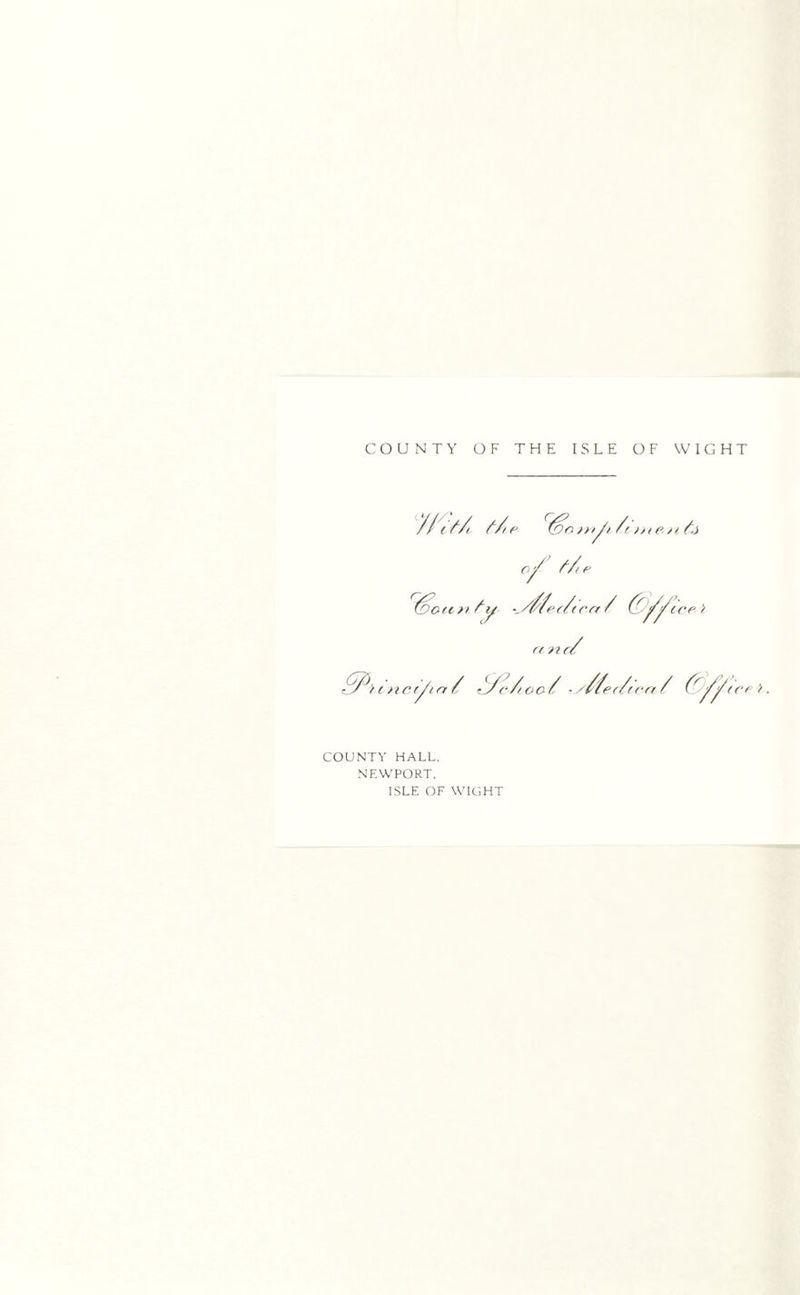 COUNTY OF THE ISLE OF WIGHT
With the Compliments
of the
County Medical Officer
and
Principal School Medical Officer.
COUNTY HALL,
NEWPORT,
ISLE OF WIGHT